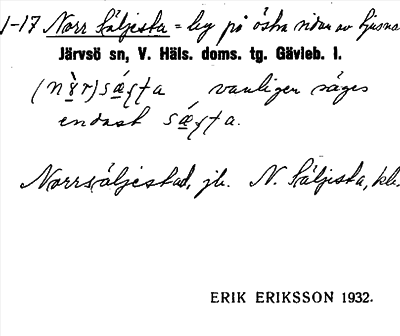 1-17 Norr Säljesta = leg på östra sidan av Ljusna
Järvsö sn, V. Häls. doms. tg. Gävleb. l.
vanligen säges
endast
Norrsäljestad, jb. N. Säljesta, kb.
ERIK ERIKSSON 1932.